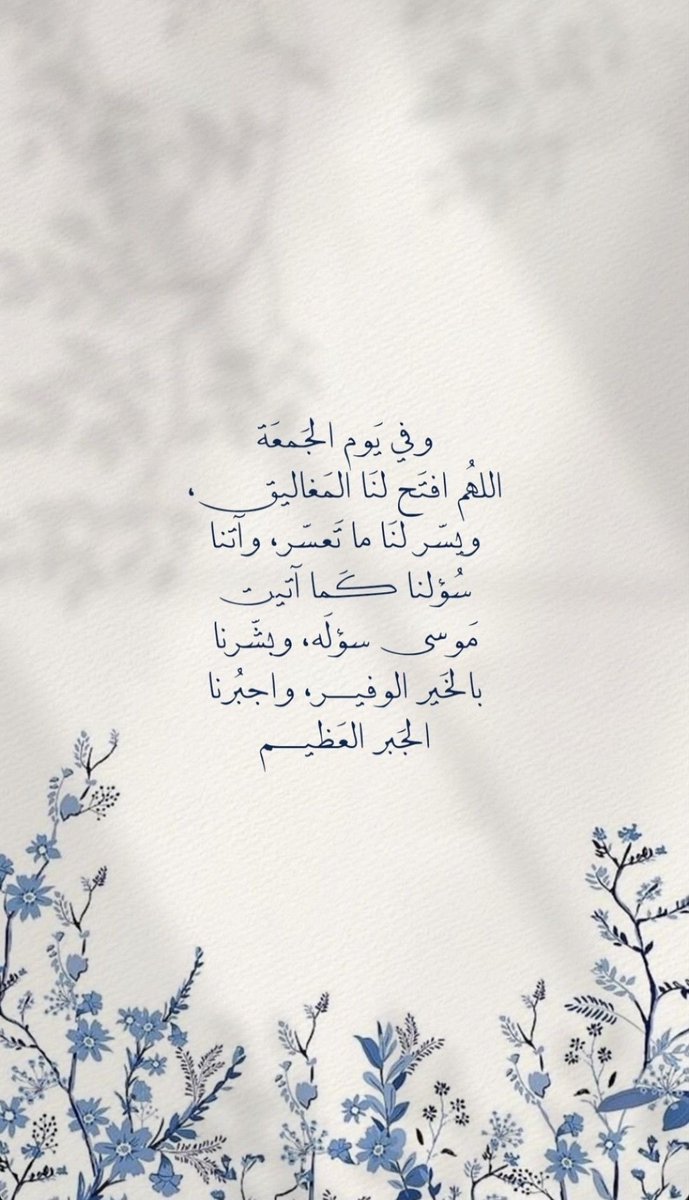 وفي يَوم الجَمعَة
اللهُم افتَح لنَا المَغاليق،
ويسّر لنَا ما تَعسّر، وآتنا
سُؤلنا كَما آتيت
مَوسى سؤلَه، وبشّرنا
بالخَير الوفيـر، واجبُرنا
الجَبر العَظيـم